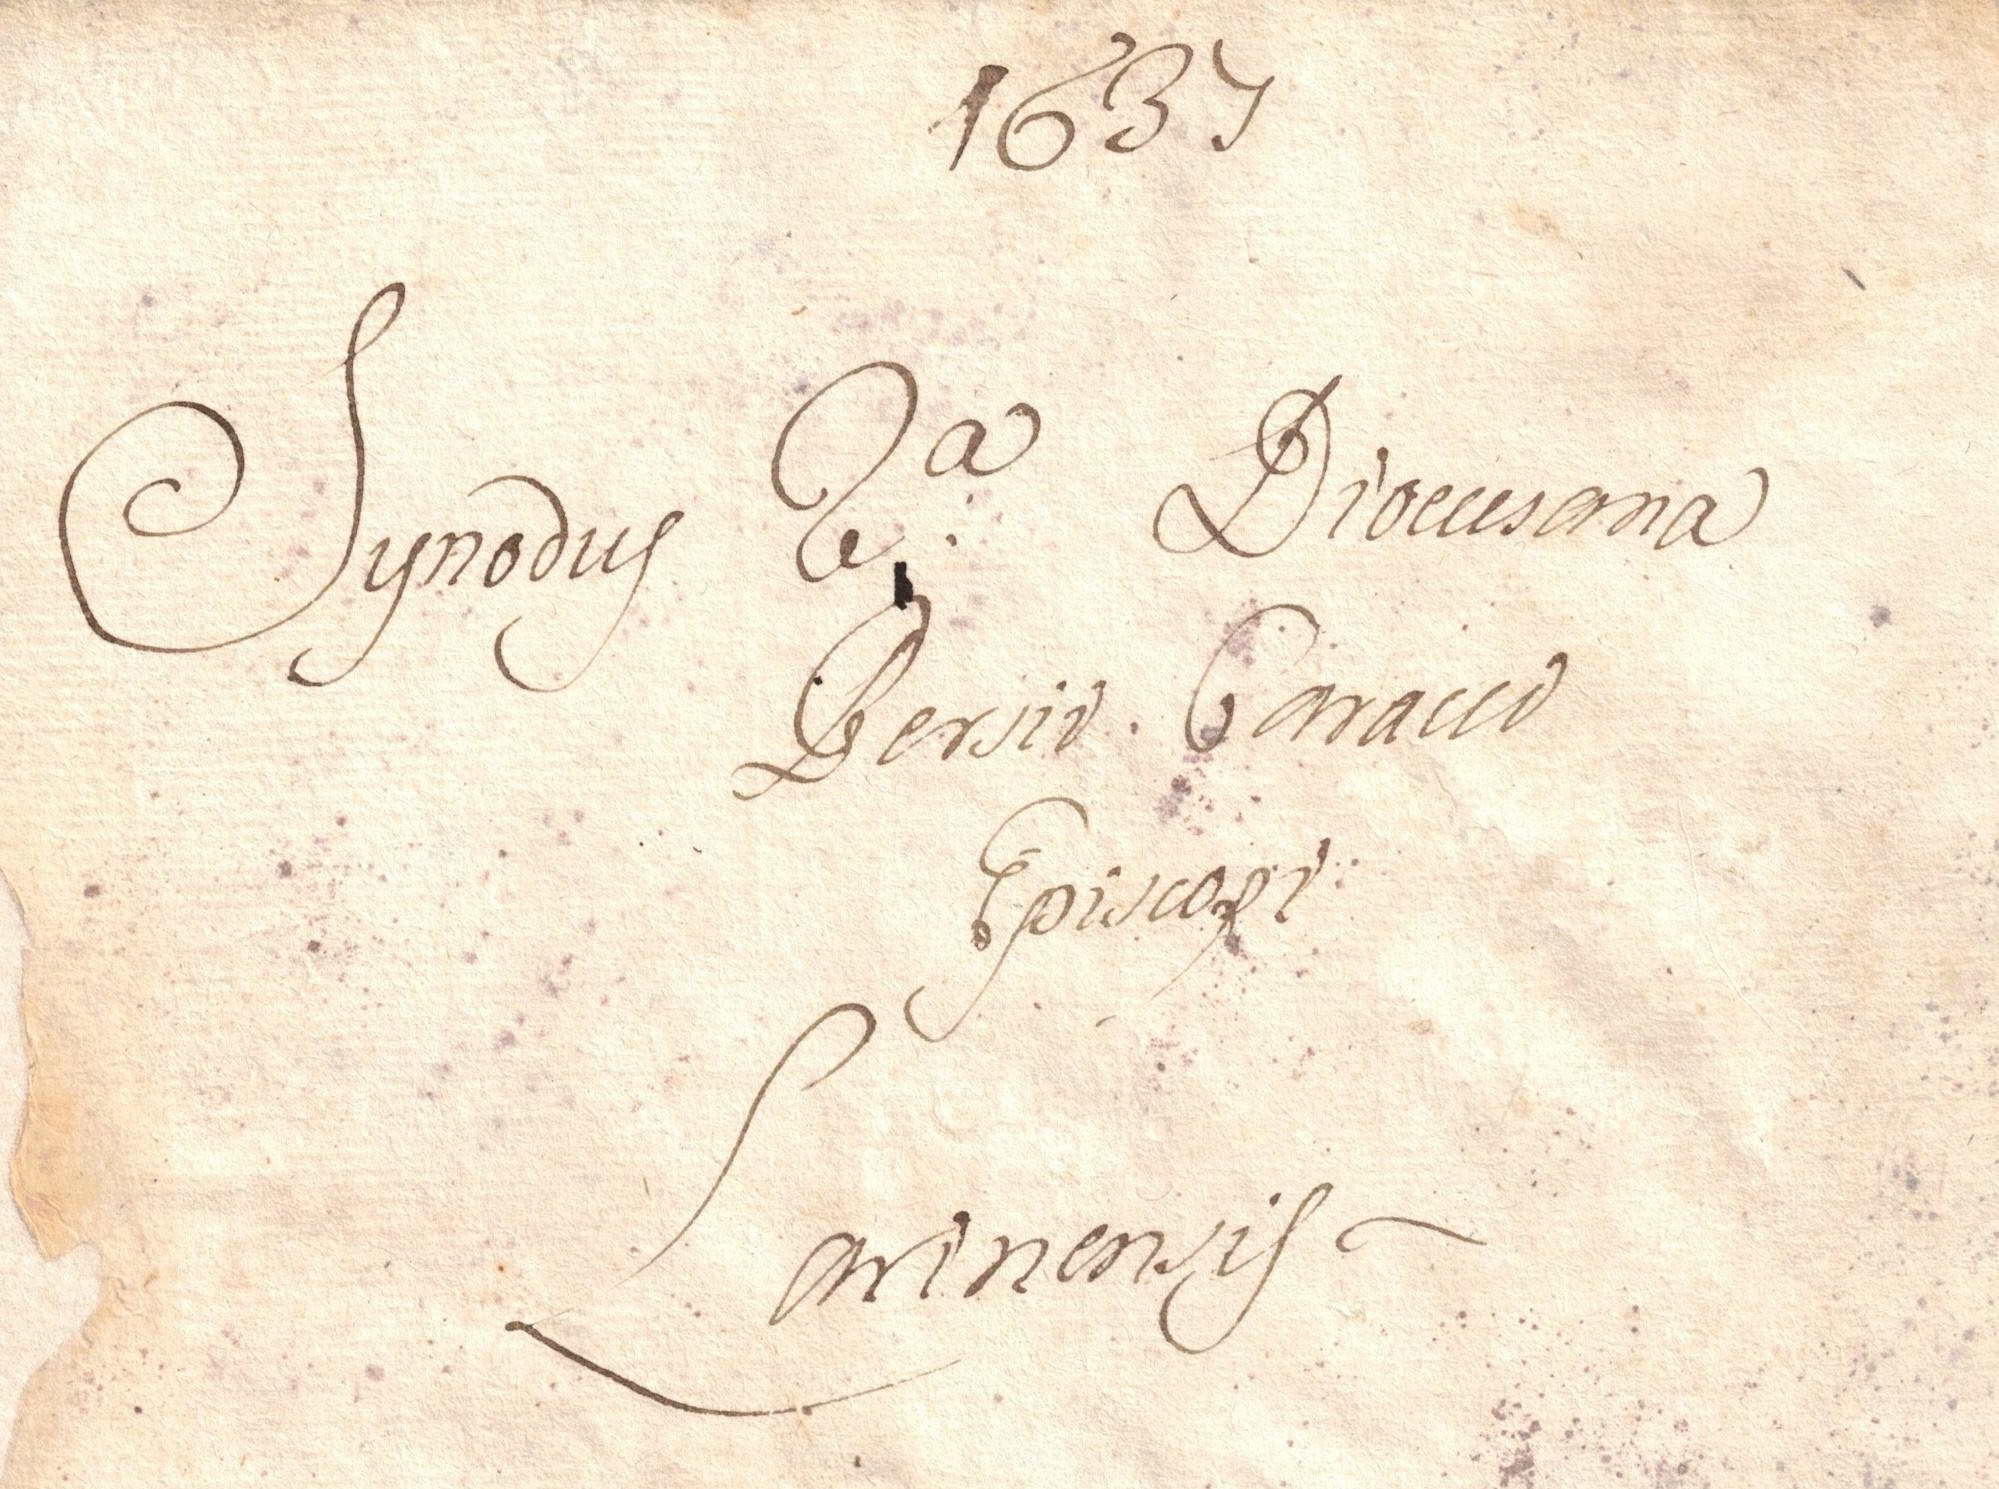 1637
Synodus 2.ª Dioecesana
Persii Caracci
Episcopi
Larinensis